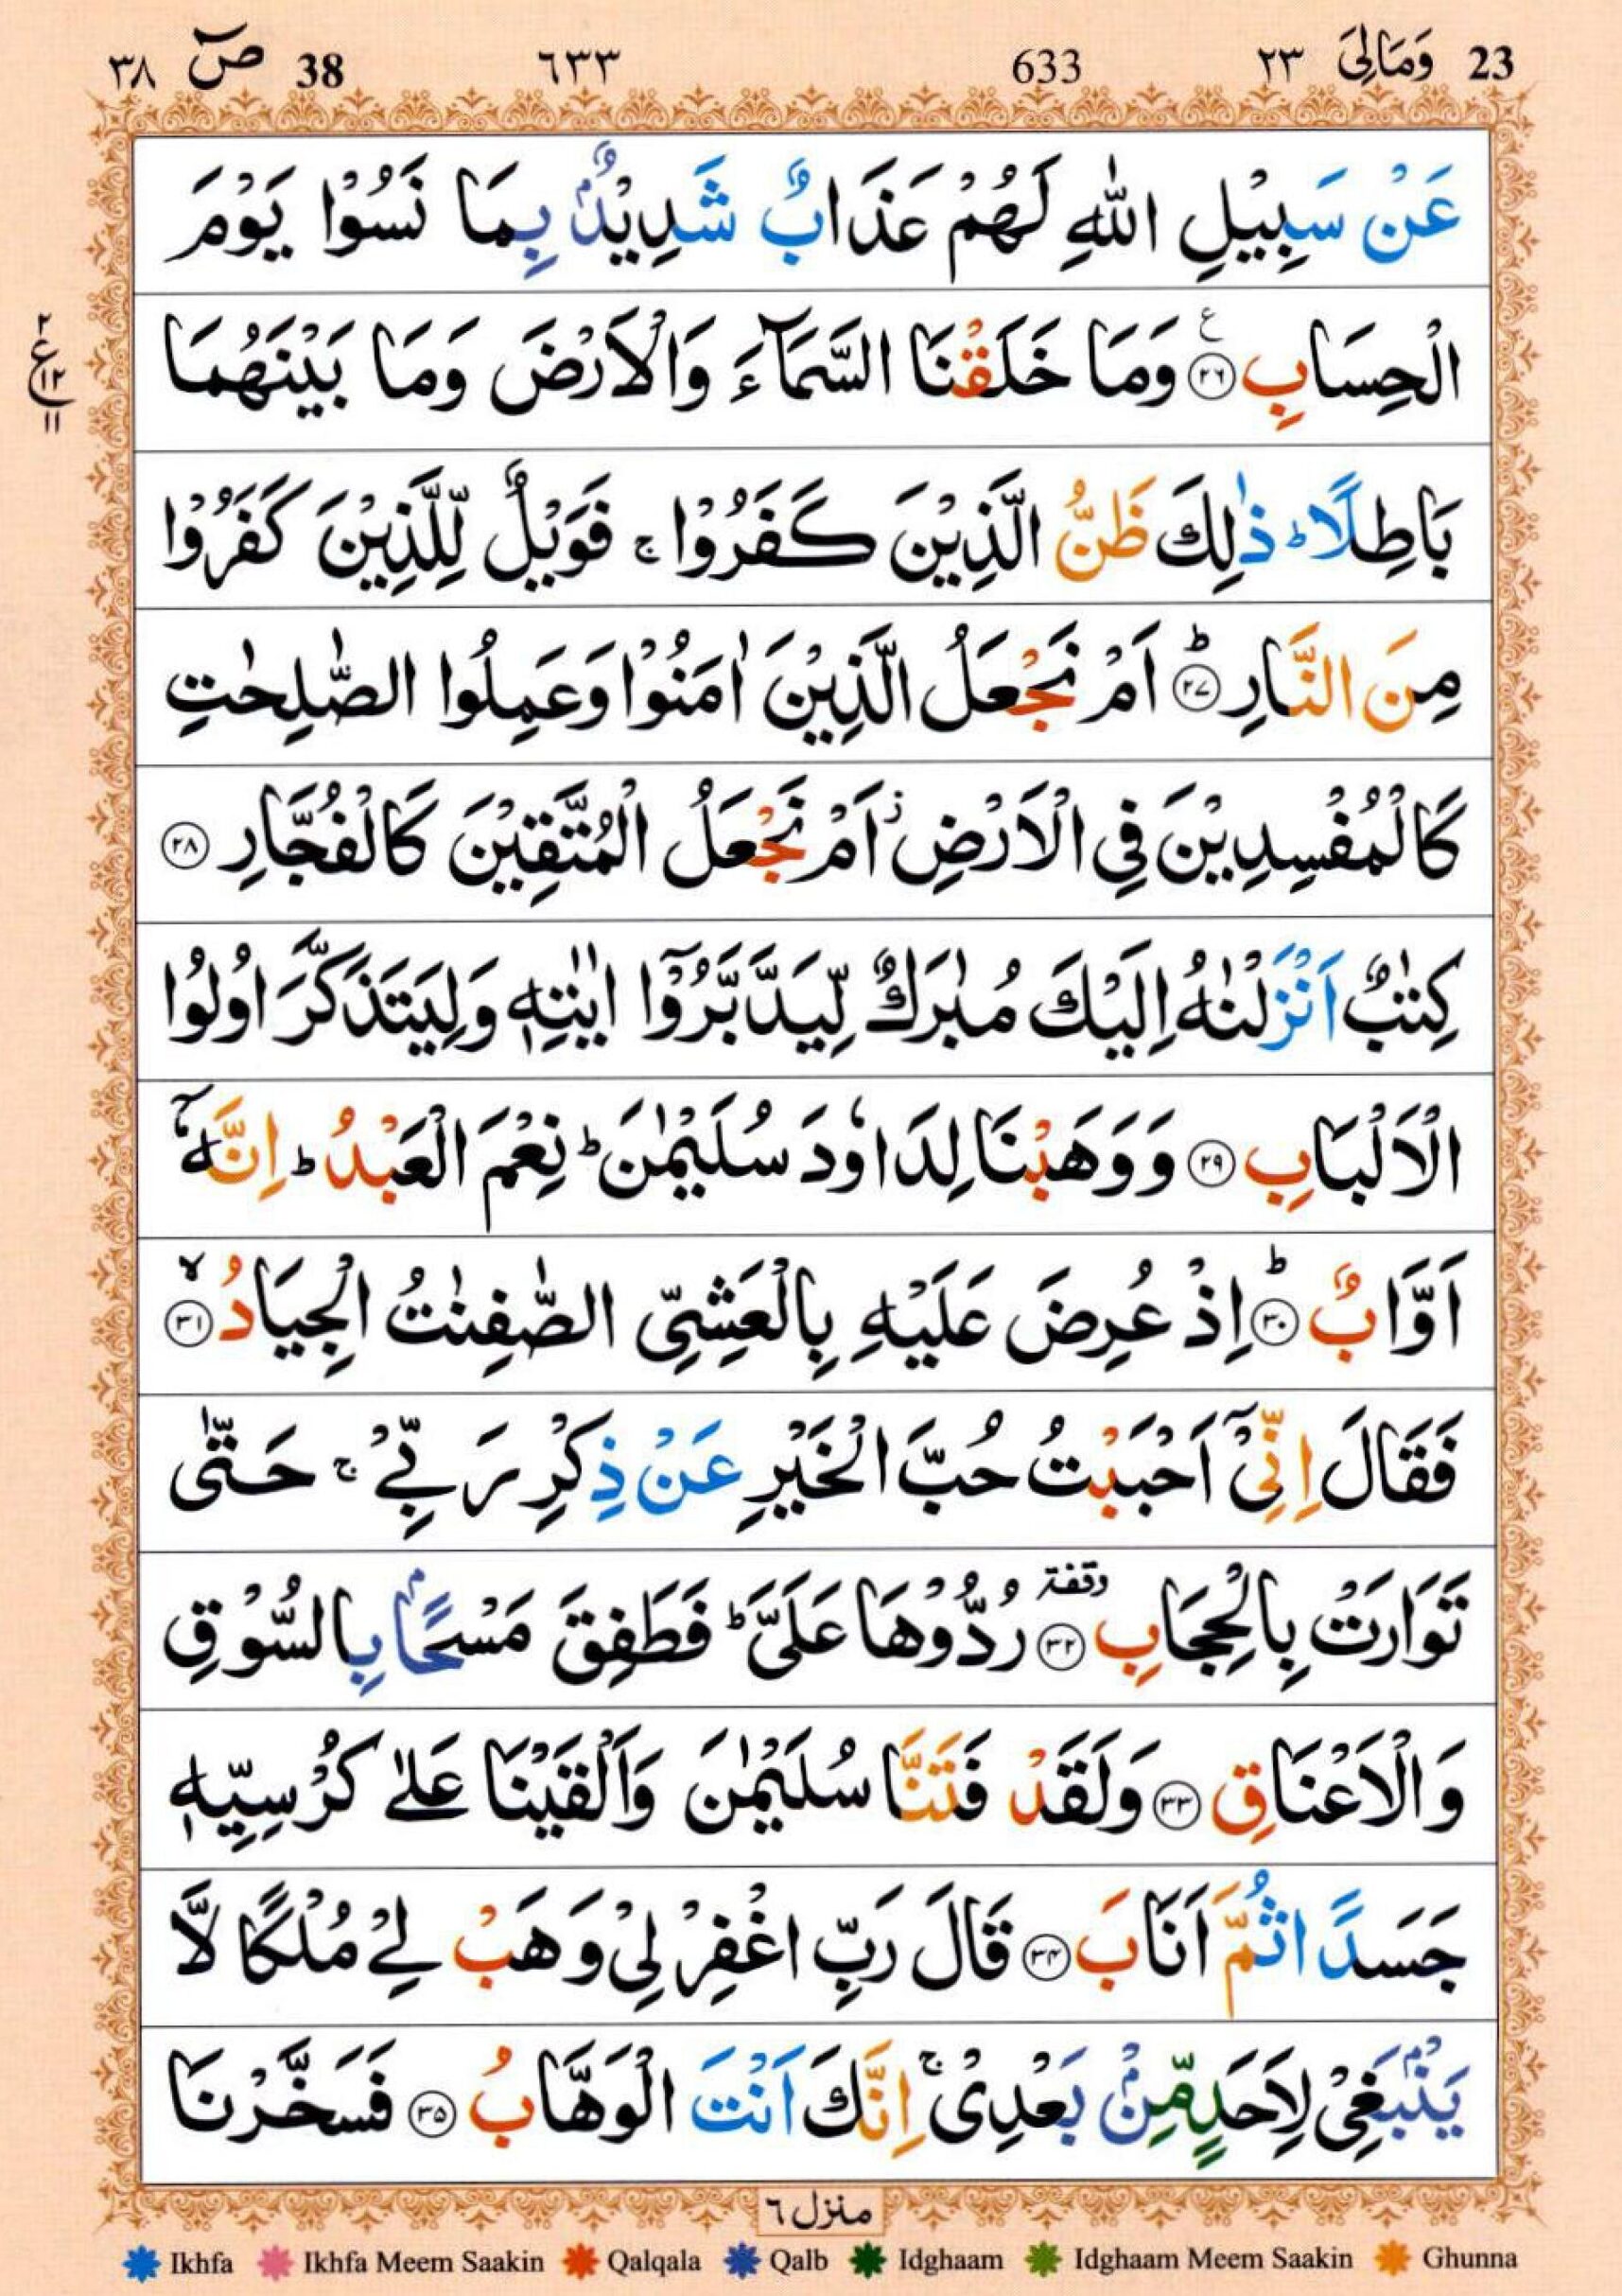 23 وَمَالِیَ ٢٣ 633 ٦٣٣ 38 صٓ ٣٨
عَنْ سَبِيْلِ اللّٰهِ لَهُمْ عَذَابٌ شَدِيْدٌۢ بِمَا نَسُوْا يَوْمَ
الْحِسَابِ ﴿٢٦﴾ ع وَمَا خَلَقْنَا السَّمَآءَ وَالْاَرْضَ وَمَا بَيْنَهُمَا
٢
ع
١٢
١١
بَاطِلًا ؕ ذٰلِكَ ظَنُّ الَّذِيْنَ كَفَرُوْا ۚ فَوَيْلٌ لِّلَّذِيْنَ كَفَرُوْا
مِنَ النَّارِ ؕ ﴿٢٧﴾ اَمْ نَجْعَلُ الَّذِيْنَ اٰمَنُوْا وَعَمِلُوا الصّٰلِحٰتِ
كَالْمُفْسِدِيْنَ فِي الْاَرْضِ ؗ اَمْ نَجْعَلُ الْمُتَّقِيْنَ كَالْفُجَّارِ ﴿٢٨﴾
كِتٰبٌ اَنْزَلْنٰهُ اِلَيْكَ مُبٰرَكٌ لِّيَدَّبَّرُوْۤا اٰيٰتِهٖ وَلِيَتَذَكَّرَ اُولُوا
الْاَلْبَابِ ﴿٢٩﴾ وَوَهَبْنَا لِدَاوٗدَ سُلَيْمٰنَ ؕ نِعْمَ الْعَبْدُ ؕ اِنَّهٗۤ
اَوَّابٌ ؕ ﴿٣٠﴾ اِذْ عُرِضَ عَلَيْهِ بِالْعَشِيِّ الصّٰفِنٰتُ الْجِيَادُ ۙ ﴿٣١﴾
فَقَالَ اِنِّيْۤ اَحْبَبْتُ حُبَّ الْخَيْرِ عَنْ ذِكْرِ رَبِّيْ ۚ حَتّٰى
تَوَارَتْ بِالْحِجَابِ ﴿٣٢﴾ وقفة رُدُّوْهَا عَلَيَّ ؕ فَطَفِقَ مَسْحًۢا بِالسُّوْقِ
وَالْاَعْنَاقِ ﴿٣٣﴾ وَلَقَدْ فَتَنَّا سُلَيْمٰنَ وَاَلْقَيْنَا عَلٰى كُرْسِيِّهٖ
جَسَدًا ثُمَّ اَنَابَ ﴿٣٤﴾ قَالَ رَبِّ اغْفِرْ لِيْ وَهَبْ لِيْ مُلْكًا لَّا
يَنْۢبَغِيْ لِاَحَدٍ مِّنْۢ بَعْدِيْ ۚ اِنَّكَ اَنْتَ الْوَهَّابُ ﴿٣٥﴾ فَسَخَّرْنَا
منزل ٦
Ikhfa Ikhfa Meem Saakin Qalqala Qalb Idghaam Idghaam Meem Saakin Ghunna